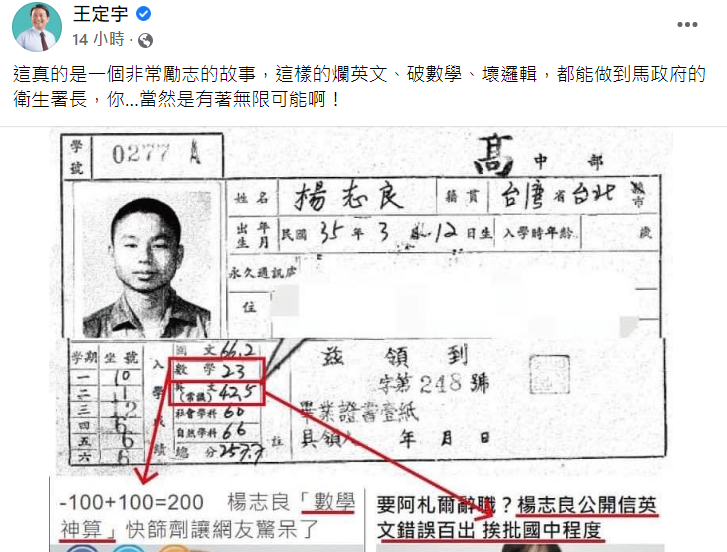 王定宇
14 小時
這真的是一個非常勵志的故事，這樣的爛英文、破數學、壞邏輯，都能做到馬政府的
衛生署長，你...當然是有著無限可能啊！
學號 0277 A
高中部
姓名 楊志良 籍貫 台灣省台北縣市
出生年月 民國 35 年 3 月 12 日生 入學時年齡 歲
永久通訊處
住
學期 坐號 入學成績 國文 66.2 茲領到
一 10 數學 23 字第 248 號
二 1 英文（常識） 42.5 畢業證書壹紙
三 12 社會學科 60
四 6 自然學科 66 註 具領人 年 月 日
五 6 總分 257.7
六 6
-100+100=200 楊志良「數學
神算」快篩劑讓網友驚呆了
要阿札爾辭職？楊志良公開信英
文錯誤百出 挨批國中程度